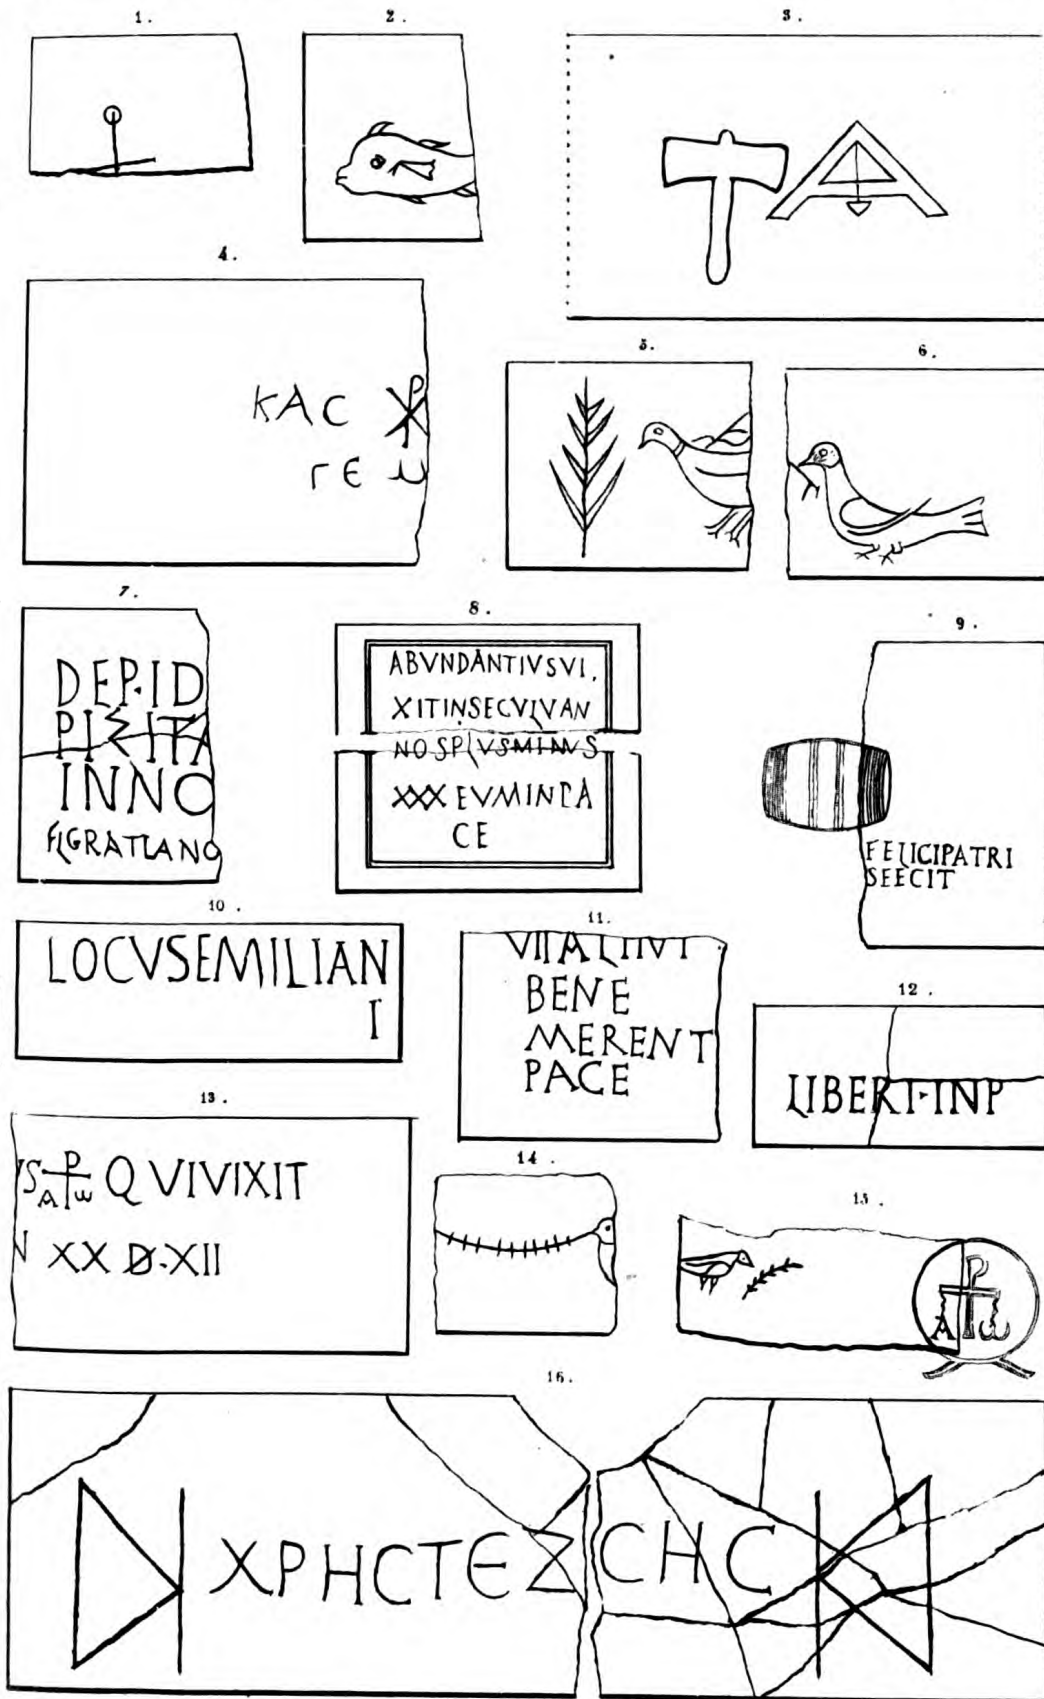 1.
2.
3.
4.
ΚΑC ☧
ΓЄ ω
5.
6.
7.
DEP·ID
INNO
FLGRATIANO
8.
ABVNDANTIVSVI.
XITINSECVLVAN
NOSPLVSMINVS
XXXEVMINPA
CE
9.
FELICIPATRI
SEECIT
10.
LOCVSEMILIAN
I
11.
BENE
MERENT
PACE
12.
LIBERT·INP
13.
VS A⳨ω QVIVIXIT
N XX D·XII
14.
15.
A⳨ω
16.
ΧΡΗCΤЄΖCΗC